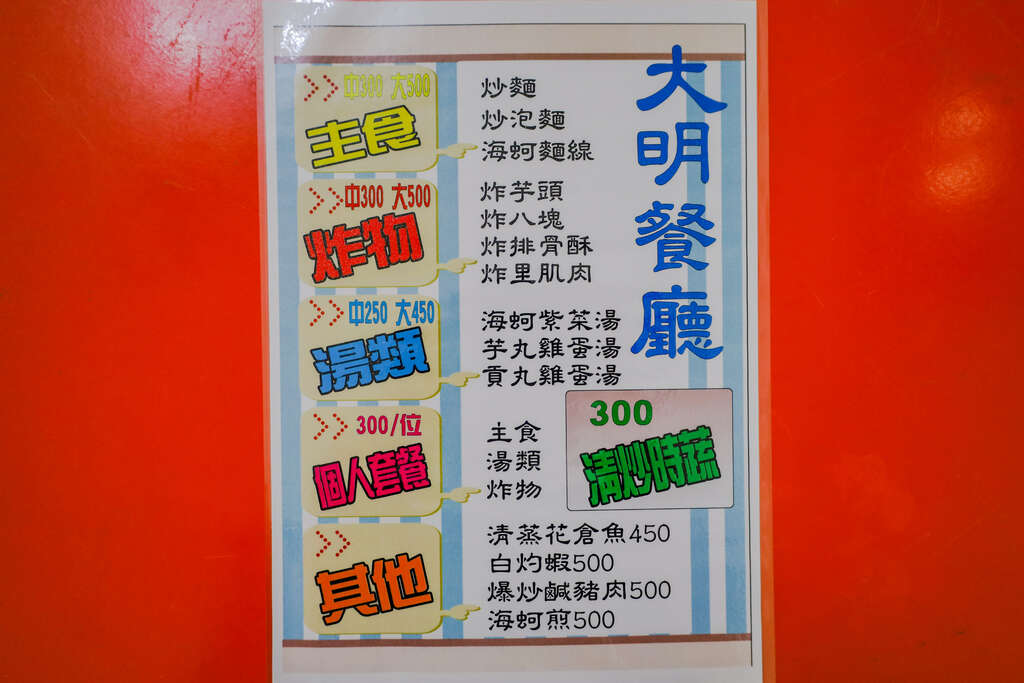 大明餐廳
中300 大500
主食
炒麵
炒泡麵
海蚵麵線
中300 大500
炸物
炸芋頭
炸八塊
炸排骨酥
炸里肌肉
中250 大450
湯類
海蚵紫菜湯
芋丸雞蛋湯
貢丸雞蛋湯
300/位
個人套餐
主食
湯類
炸物
300
清炒時蔬
其他
清蒸花倉魚450
白灼蝦500
爆炒鹹豬肉500
海蚵煎500